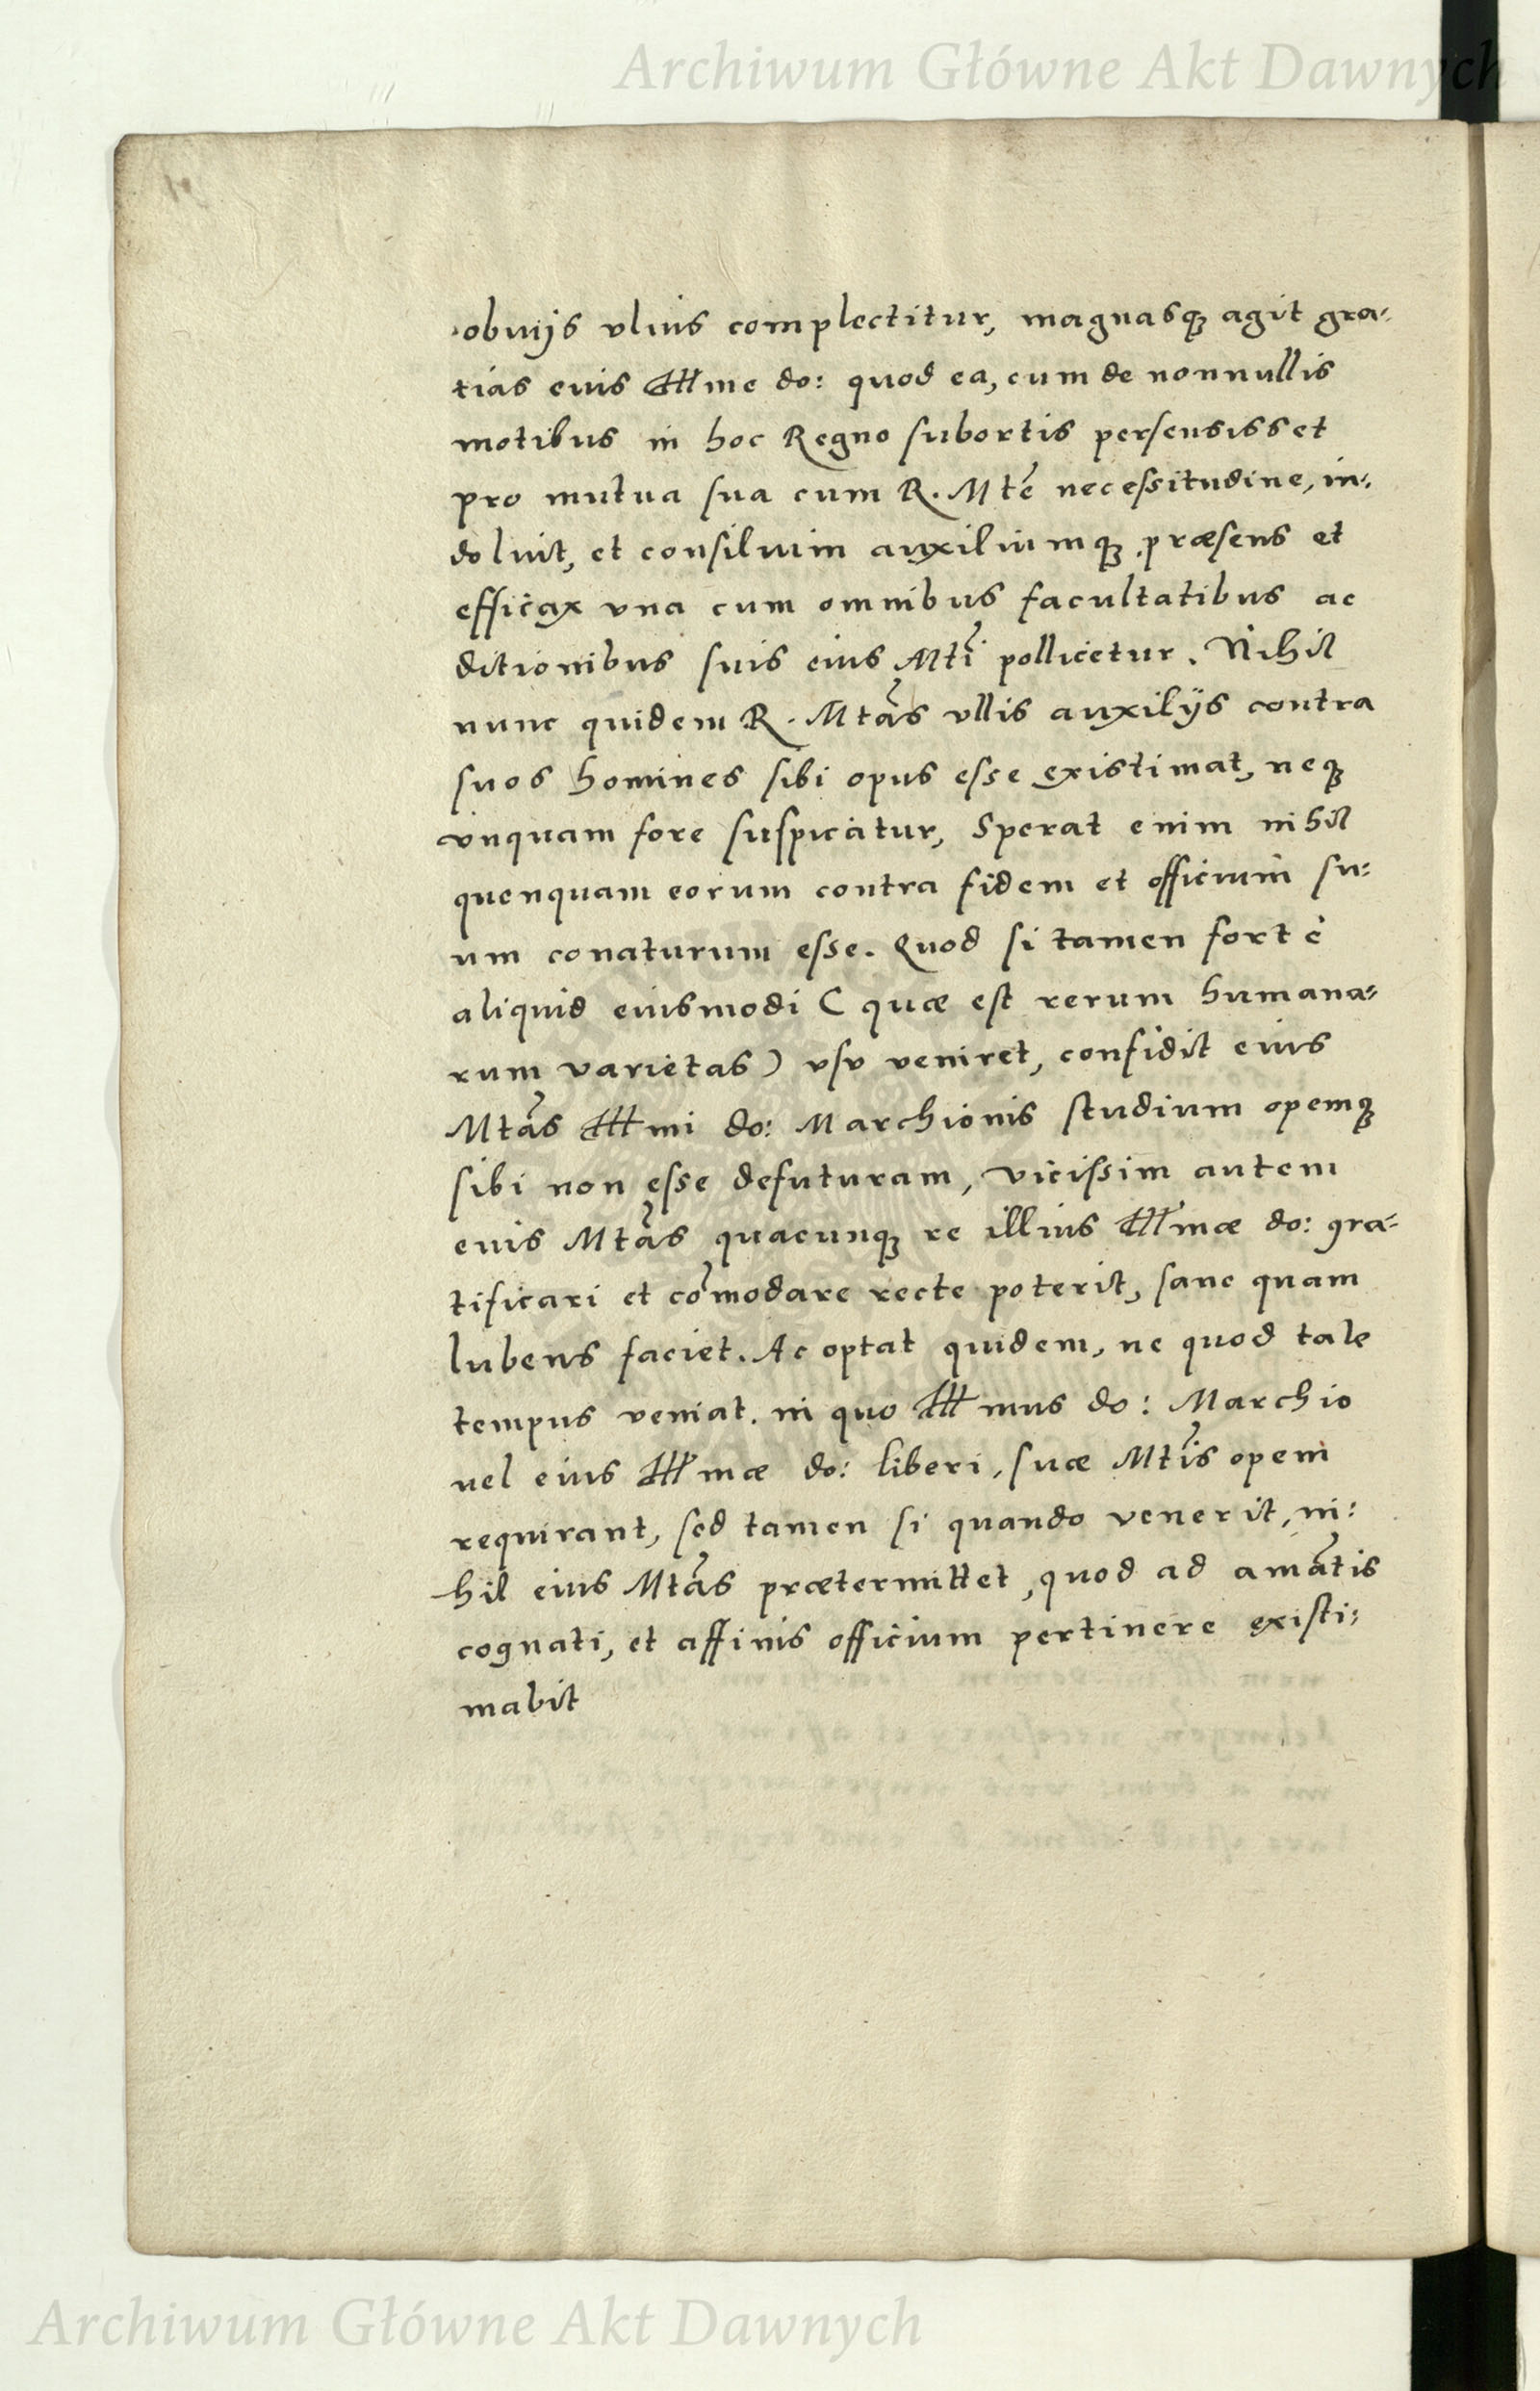 Archiwum Główne Akt Dawnych
obvijs vlnis complectitur, magnasq₃ agit gra-
tias eius Illme do: quod ea, cum de nonnullis
motibus in hoc Regno subortis persensisset
pro mutua sua cum R. Mtẽ necessitudine, in-
doluit, et consilium auxiliumq₃ præsens et
efficax vna cum omnibus facultatibus ac
ditionibus suis eius Mtĩ pollicetur. Nihil
nunc quidem R. Mtãs vllis auxilijs contra
suos homines sibi opus esse existimat, neq₃
vnquam fore suspicatur, Sperat enim nihil
quenquam eorum contra fidem et officium su-
um conaturum esse. Quod si tamen fortè
aliquid eiusmodi ( quæ est rerum humana-
rum varietas) vsv veniret, confidit eius
Mtãs Illmi do: Marchionis studium opemq₃
sibi non esse defuturam, vicissim autem
eius Mtãs quacunq₃ re illius Illmæ do: gra-
tificari et cõmodare recte poterit, sane quam
lubens faciet. Ac optat quidem, ne quod tale
tempus veniat. in quo Illmus do: Marchio
vel eius Illmæ do: liberi, suæ Mtĩs opem
requirant, sed tamen si quando venerit, ni:
hil eius Mtãs prætermittet, quod ad amãtis
cognati, et affinis officium pertinere existi:
mabit
Archiwum Główne Akt Dawnych